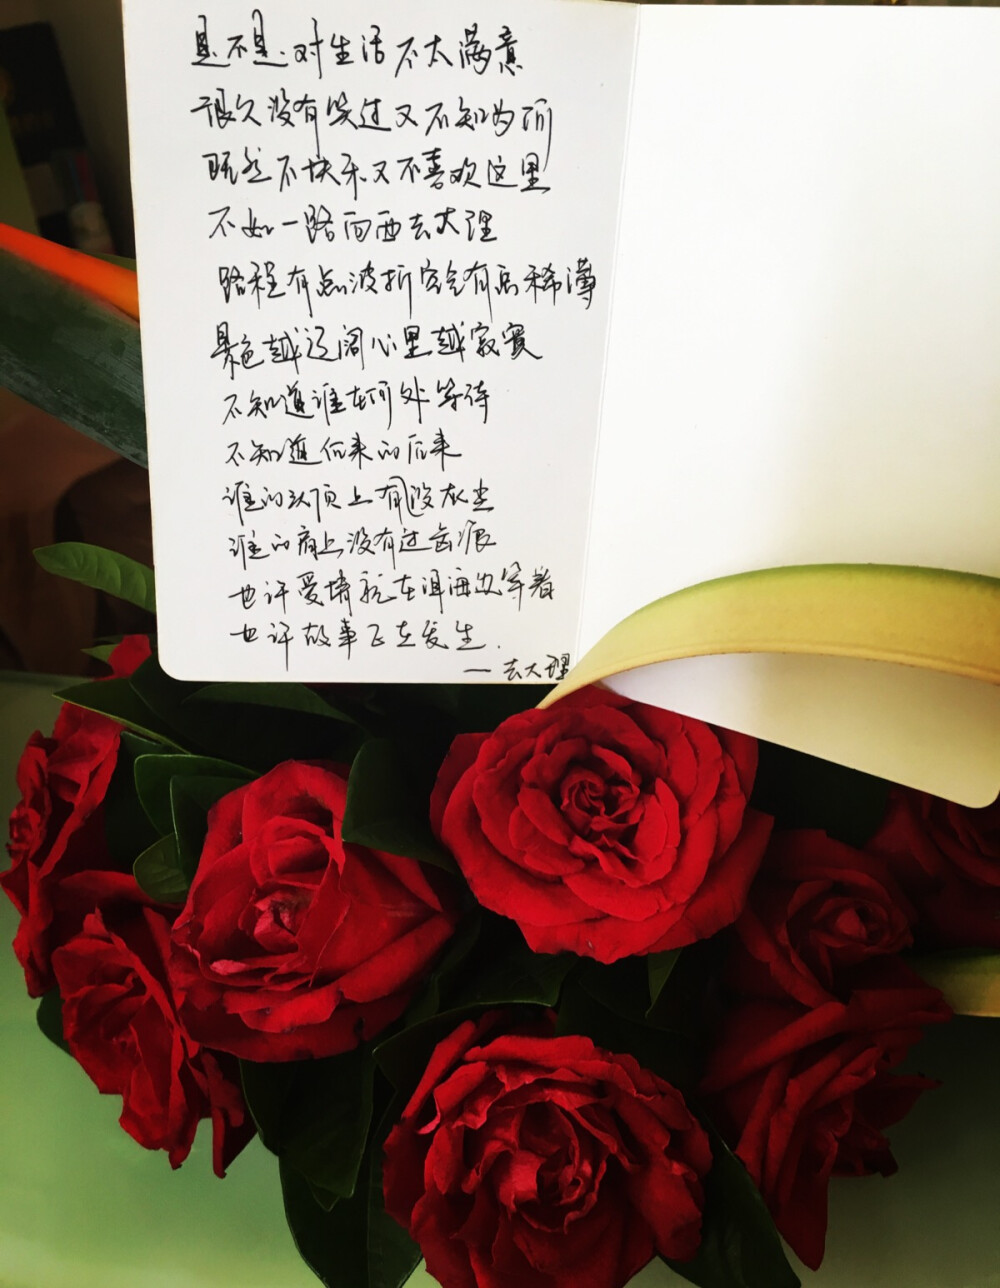 是不是对生活不太满意
很久没有笑过又不知为何
既然不快乐又不喜欢这里
不如一路向西去大理
路程有点波折空气有点稀薄
景色越辽阔心里越寂寞
不知道谁在何处等待
不知道后来的后来
谁的头顶上有没灰尘
谁的肩上没有过齿痕
也许爱情就在洱海边等着
也许故事正在发生.
—去大理